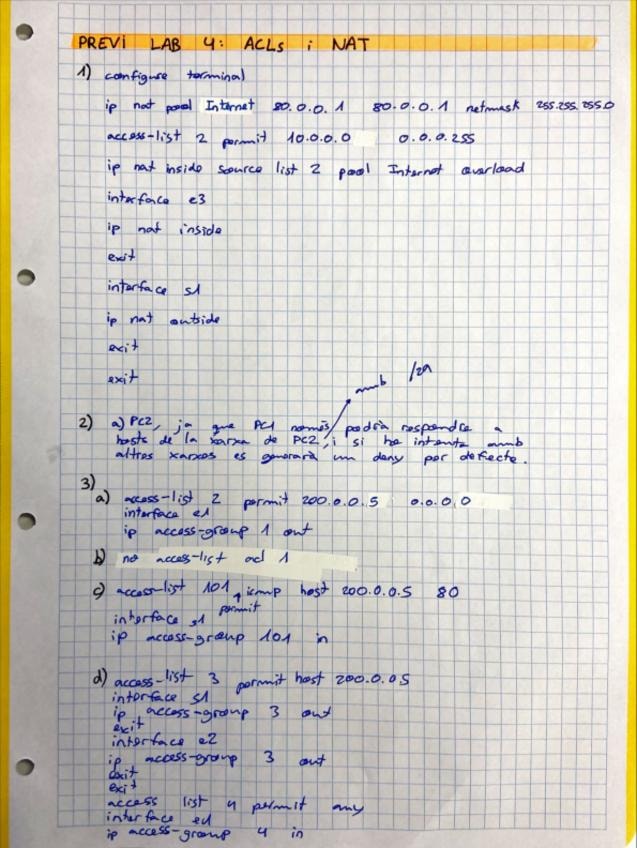 PREVI LAB 4: ACLs i NAT
1) configure terminal
ip nat pool Internet 80.0.0.1 80.0.0.1 netmask 255.255.255.0
access-list 2 permit 10.0.0.0 0.0.0.255
ip nat inside source list 2 pool Internet overload
interface e3
ip nat inside
exit
interface s1
ip nat outside
exit
exit
amb /29
2) a) PC2, ja que PC1 només podria respondre a
hosts de la xarxa de PC2, i si ho intenta amb
altres xarxes es generarà un deny per defecte.
3)
a) access-list 2 permit 200.0.0.5 0.0.0.0
interface e1
ip access-group 1 out
b) no access-list acl 1
c) access-list 101 permit icmp host 200.0.0.5 80
interface s1
ip access-group 101 in
d) access-list 3 permit host 200.0.05
interface s1
ip access-group 3 out
exit
interface e2
ip access-group 3 out
exit
exit
access list 4 permit any
interface e1
ip access-group 4 in